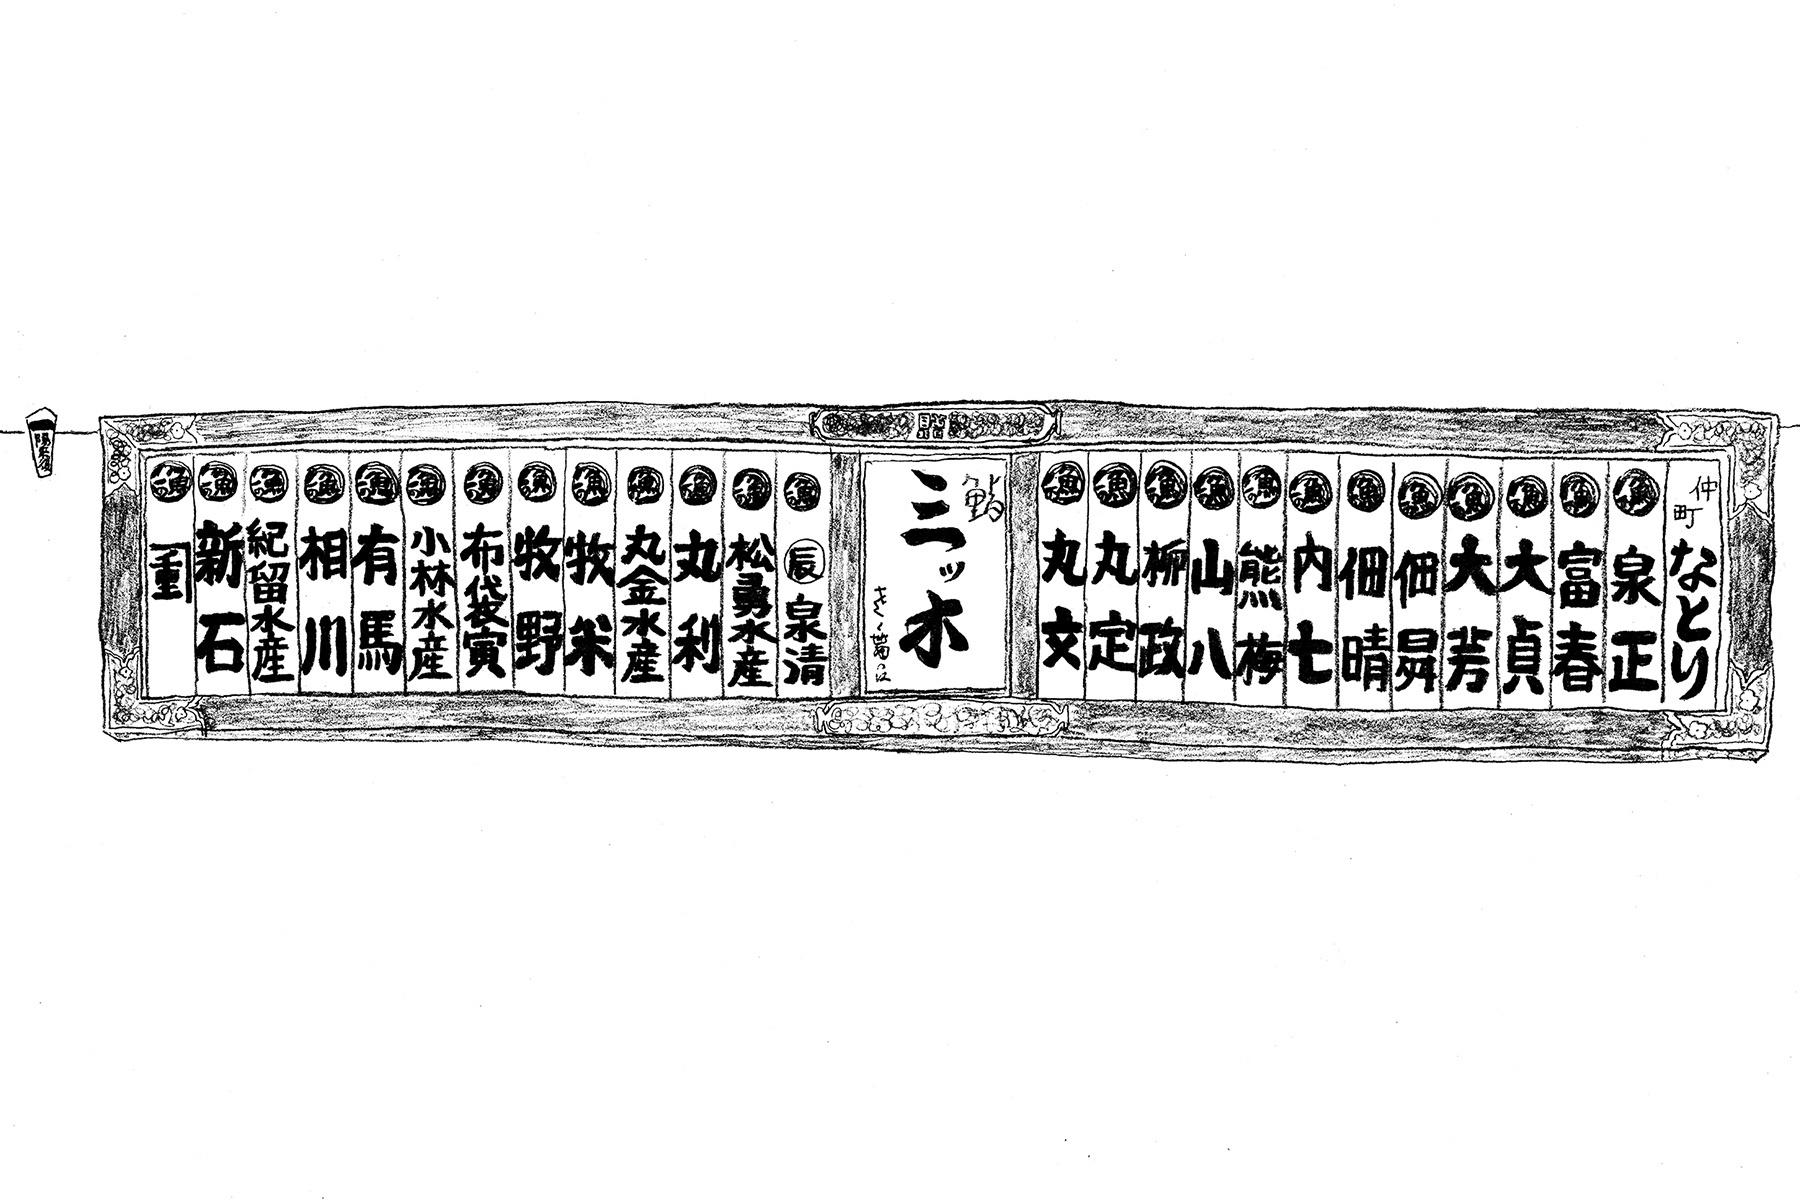 仲町 なとり
泉正
富春
大貞
大芳
佃昇
佃晴
内七
熊梅
山八
柳政
丸定
丸文
贈
鮨
三ッ木
辰 泉清
松勇水産
丸利
丸金水産
牧米
牧野
布袋寅
小林水産
有馬
相川
紀留水産
新石
重